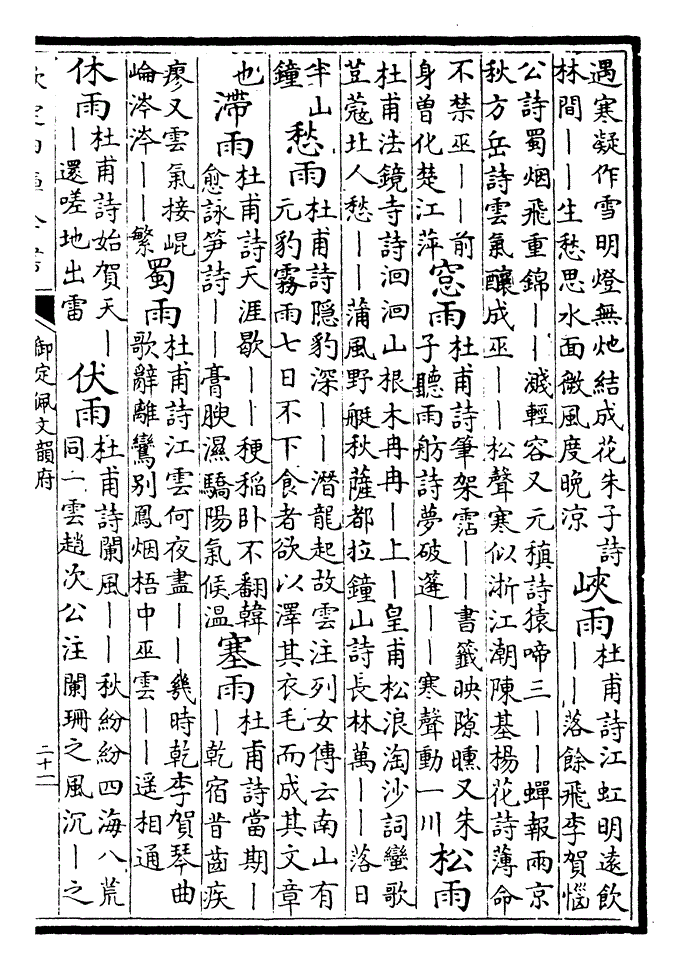 遇寒凝作雪明燈無灺結成花朱子詩
林間——生愁思水面微風度晚涼
峽雨
杜甫詩江虹明遠飲
——落餘飛李賀惱
公詩蜀烟飛重錦——濺輕容又元稹詩猿啼三——蟬報兩京
秋方岳詩雲氣釀成巫——松聲寒似浙江潮陳基楊花詩薄命
不禁巫——前
身曾化楚江萍
窓雨
杜甫詩筆架霑——書籤映隙曛又朱
子聽雨舫詩夢破蓬——寒聲動一川
松雨
杜甫法鏡寺詩洄洄山根木冉冉—上—皇甫松浪淘沙詞蠻歌
荳蔻北人愁——蒲風野艇秋薩都拉鐘山詩長林萬——落日
半山
鐘
愁雨
杜甫詩隱豹深——潛龍起故雲注列女傳云南山有
元豹霧雨七日不下食者欲以澤其衣毛而成其文章
也
滯雨
杜甫詩天涯歇——稉稻卧不翻韓
愈詠笋詩——膏腴濕驕陽氣候溫
塞雨
杜甫詩當期—
—乾宿昔齒疾
廖又雲氣接崐
崘涔涔——繁
蜀雨
杜甫詩江雲何夜盡——幾時乾李賀琴曲
歌辭離鸞别鳳烟梧中巫雲——遥相通
休雨
杜甫詩始賀天—
—還嗟地出雷
伏雨
杜甫詩闌風——秋紛紛四海八荒
同一雲趙次公注闌珊之風沉—之
欽定四庫全書
御定佩文韻府
二十二